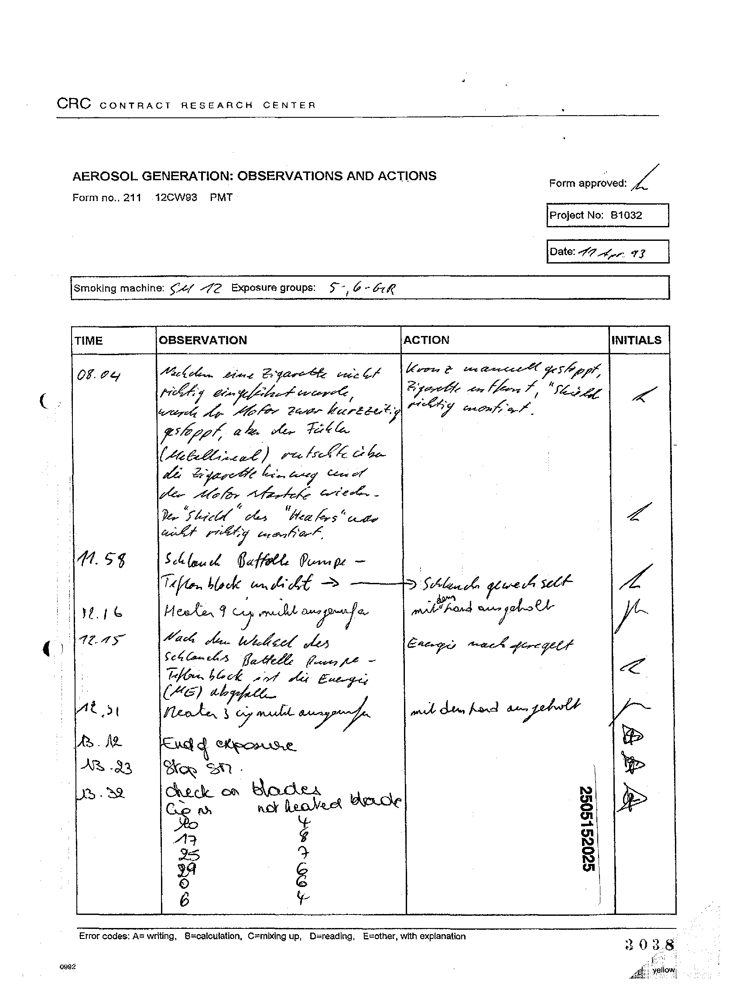 CRC CONTRACT RESEARCH CENTER
AEROSOL GENERATION: OBSERVATIONS AND ACTIONS
Form no.. 211 12CW93 PMT
Form approved:
Project No: B1032
Date: 17 Apr. 93
Smoking machine: SM 12 Exposure groups: 5-, 6-GR
TIME OBSERVATION ACTION INITIALS
08.04 Nachdem eine Zigarette nicht
richtig eingeführt wurde,
wurde der Motor zwar kurzzeitig
gestoppt, aber der Fühler
(Metallineal) rutschte über
die Zigarette hinweg und
der Motor startete wieder.
Der "Shield" des "Heaters" war
nicht richtig montiert.
manuell gestoppt,
Zigarette entfernt, "Shield
richtig montiert.
11.58 Schlauch Battelle Pumpe -
Teflonblock undicht → → Schlauch gewechselt
12.16 Heater 9 cig nicht ausgeworfen mit der Hand ausgeholt
12.15 Nach dem Wechsel des Energie nachgeregelt
Schlauchs Battelle Pumpe -
Teflonblock ist die Energie
(ME) abgefallen
12.31 Heater 3 cig nicht ausgeworfen mit der Hand ausgeholt
13.12 End of exposure
13.23 Stop SM.
13.32 check on blades
Cig nr not heated blade
20 4
17 8
25 7
29 6
0 6
6 4
2505152025
Error codes: A= writing, B=calculation, C=mixing up, D=reading, E=other, with explanation
3038
0992
yellow